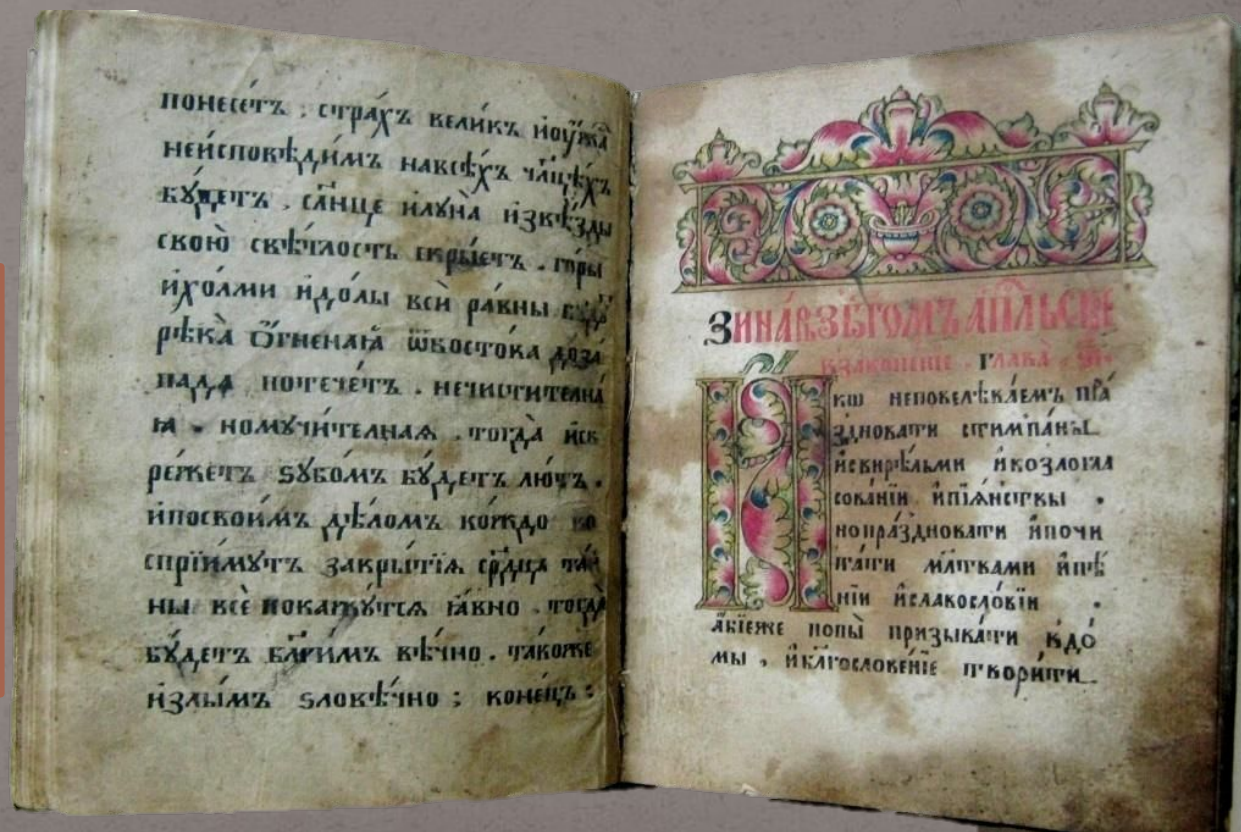 понесе́тъ . стра́хъ вели́къ и҆оу҆́жа
неи҆сповѣ́димъ навсѣ́хъ чл҃цѣ́хъ
бꙋ́детъ . сл҃нце и҆лꙋна̀ и҆звѣ́зды
свою̀ свѣ́тлость скры́етъ . го́ры
и҆хо́лми и҆до́лы всѝ ра́вны
рѣка̀ ѻ҆́гненаꙗ ѿвосто́ка доза́
пада поте́четъ . нечисти́телна
ꙗ . номꙋчи́телнаѧ . тогда̀ и҆ск
ре́жетъ ѕꙋбо́мъ бꙋ́детъ лю́тъ .
и҆посвои́мъ дѣ́ломъ ко́ждо во
спрїи́мꙋтъ закры́тїѧ ср҃дца та́й
ны всѐ пока́жꙋтсѧ ꙗ҆́вно . тогда̀
бꙋ́детъ бл҃ги́мъ вѣ́чно . та́коже
и҆злы́мъ ѕловѣ́чно ; коне́цъ :
Глава̀
ꙗкѡ неповелѣва́емъ пра́
здновати стимпаны
и҆свирѣ́льми и҆козлогла
сова́нїи и҆пїѧ́нствы .
нопра́здновати и҆почи
та́ти мл҃твами и҆пѣ́
нїи и҆славосло́вїи .
а҆́бїеже попы̀ призыва́ти вдо́
мы , и҆благослове́нїе твори́ти